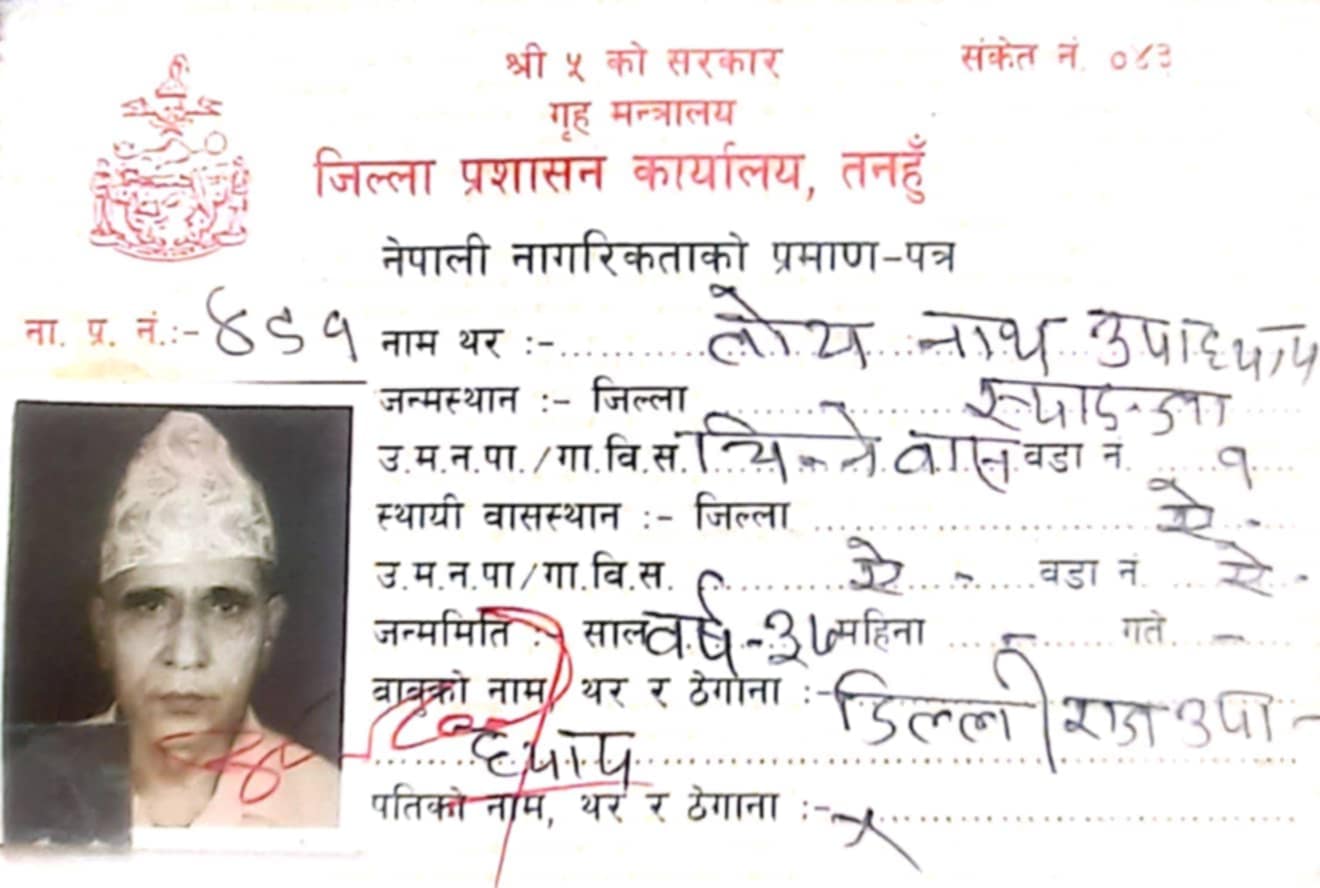 श्री ५ को सरकार
संकेत नं. ०४३
गृह मन्त्रालय
जिल्ला प्रशासन कार्यालय, तनहुँ
नेपाली नागरिकताको प्रमाण-पत्र
ना. प्र. नं.:- ४६१ नाम थर :- नाथ उपाध्याय
जन्मस्थान :- जिल्ला स्याङ्जा
उ.म.न.पा./गा.वि.स. वडा नं. १
स्थायी वासस्थान :- जिल्ला ऐ.
उ.म.न.पा/गा.वि.स. ऐ - वडा नं. ऐ.
जन्ममिति :- साल वर्ष-३७ महिना - गते -
बाबुको नाम, थर र ठेगाना :- डिल्ली राज उपा-
ध्याय
पतिको नाम, थर र ठेगाना :- x